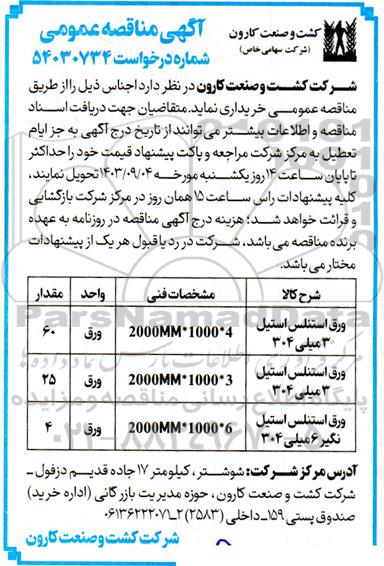 کشت و صنعت کارون
(شرکت سهامی خاص)
آگهی مناقصه عمومی
شماره درخواست ۵۴۰۳۰۷۳۴
شرکت کشت و صنعت کارون در نظر دارد اجناس ذیل را از طریق
مناقصه عمومی خریداری نماید. متقاضیان جهت دریافت اسناد
مناقصه و اطلاعات بیشتر می توانند از تاریخ درج آگهی به جز ایام
تعطیل به مرکز شرکت مراجعه و پاکت پیشنهاد قیمت خود را حداکثر
تا پایان ساعت ۱۴ روز یکشنبه مورخه ۱۴۰۳/۰۹/۰۴ تحویل نمایند،
کلیه پیشنهادات راس ساعت ۱۵ همان روز در مرکز شرکت بازگشایی
و قرائت خواهد شد؛ هزینه درج آگهی مناقصه در روزنامه به عهده
برنده مناقصه می باشد، شرکت در رد یا قبول هر یک از پیشنهادات
مختار می باشد.
شرح کالا مشخصات فنی واحد مقدار
ورق استنلس استیل
۳ میلی ۳۰۴ 2000MM*1000*4 ورق ۶۰
ورق استنلس استیل
۳ میلی ۳۰۴ 2000MM*1000*3 ورق ۲۵
ورق استنلس استیل
نگیر ۶ میلی ۳۰۴ 2000MM*1000*6 ورق ۴
آدرس مرکز شرکت: شوشتر، کیلومتر ۱۷ جاده قدیم دزفول ـ
شرکت کشت و صنعت کارون، حوزه مدیریت بازرگانی (اداره خرید)
صندوق پستی ۱۵۹ـ داخلی (۲۵۸۳) ۲ـ۰۶۱۳۶۲۲۲۰۷۱
شرکت کشت و صنعت کارون
ParsNamadData